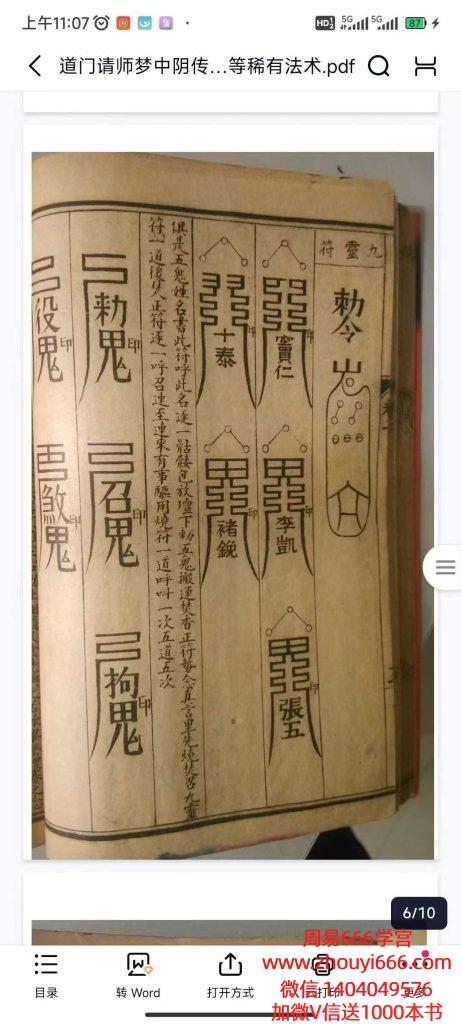 上午11:07
HD 5G 5G 87
道门请师梦中阴传...等稀有法术.pdf
九靈符
勅令
竇仁
李凱
張五
十泰
褚鋔
印
印
印
印
印
俱是五鬼姓名書此符呼此名逐一骷髏包放壇下勅五鬼搬運焚香正符勢念真言畢先燒焚召九靈
符一道後焚正符逐一呼召連至連來有事驅用燒符一道呼叫一次五道五次
勅鬼
印
召鬼
印
拘鬼
印
役鬼
印
煞鬼
印
6/10
周易666学宫
www.zhouyi666.com
微信:1404049576
加微V信送1000本书
目录
转 Word
打开方式
云打印
更多